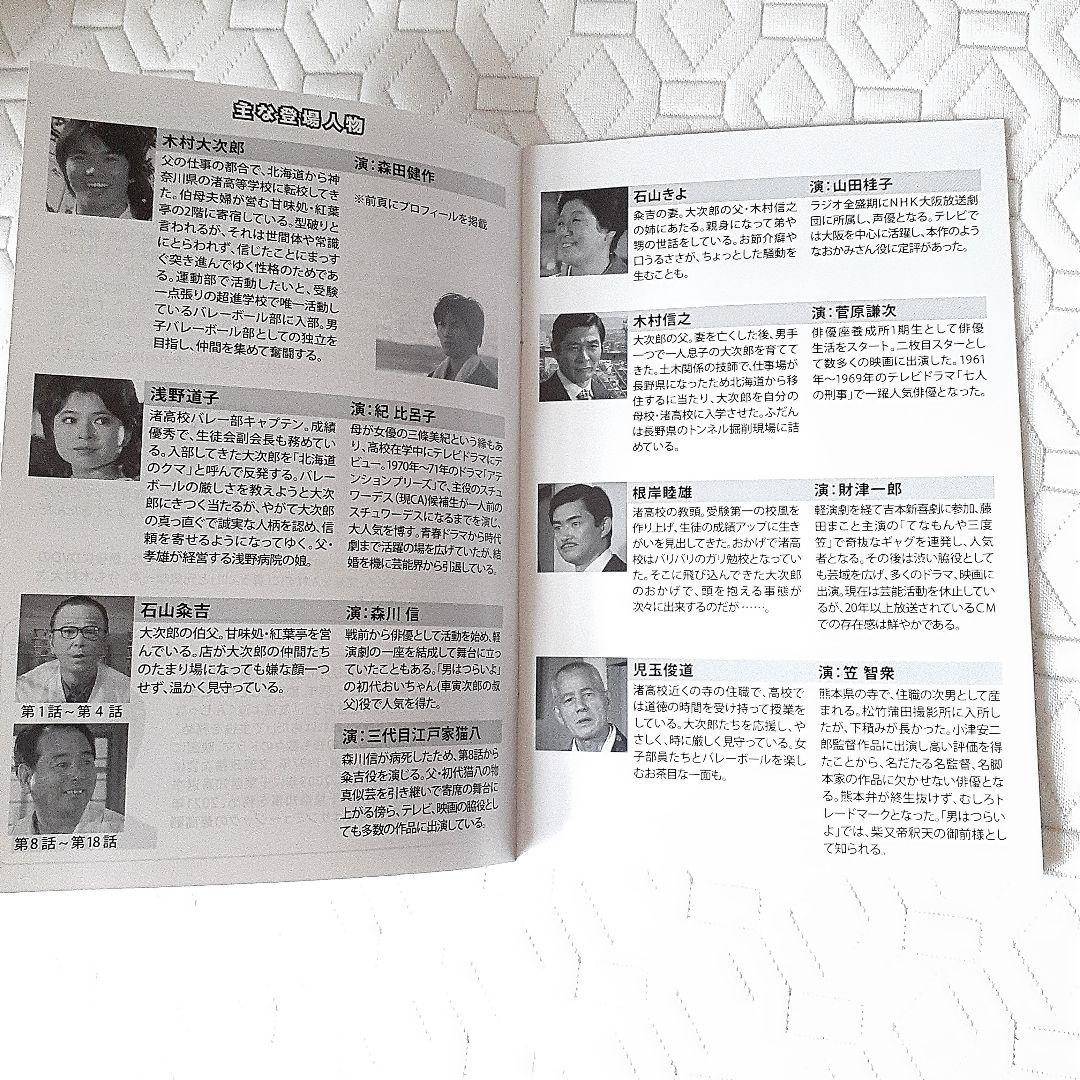 主な登場人物
木村大次郎
演：森田健作
父の仕事の都合で、北海道から神
奈川県の渚高等学校に転校してき
た。伯母夫婦が営む甘味処・紅葉
亭の2階に寄宿している。型破りと
言われるが、それは世間体や常識
にとらわれず、信じたことにまっす
ぐ突き進んでゆく性格のためであ
る。運動部で活動したいと、受験
一点張りの超進学校で唯一活動し
ているバレーボール部に入部。男
子バレーボール部としての独立を
目指し、仲間を集めて奮闘する。
※前頁にプロフィールを掲載
浅野道子
演：紀 比呂子
渚高校バレー部キャプテン。成績
優秀で、生徒会副会長も務めてい
る。入部してきた大次郎を「北海道
のクマ」と呼んで反発する。バレー
ボールの厳しさを教えようと大次
郎にきつく当たるが、やがて大次郎
の真っ直ぐで誠実な人柄を認め、信
頼を寄せるようになってゆく。父・
孝雄が経営する浅野病院の娘。
母が女優の三條美紀という縁もあ
り、高校在学中にテレビドラマにデ
ビュー。1970年〜71年のドラマ「アテ
ンションプリーズ」で、主役のスチュ
ワーデス（現CA）候補生が一人前の
スチュワーデスになるまでを演じ、
大人気を博す。青春ドラマから時代
劇まで活躍の場を広げていたが、結
婚を機に芸能界から引退している。
石山粂吉
演：森川 信
大次郎の伯父。甘味処・紅葉亭を営
んでいる。店が大次郎の仲間たち
のたまり場になっても嫌な顔一つ
せず、温かく見守っている。
戦前から俳優として活動を始め、軽
演劇の一座を結成して舞台に立っ
ていたこともある。「男はつらいよ」
の初代おいちゃん（車寅次郎の叔
父）役で人気を得た。
第1話〜第4話
演：三代目江戸家猫八
森川信が病死したため、第8話から
粂吉役を演じる。父・初代猫八の物
真似芸を引き継いで寄席の舞台に
上がる傍ら、テレビ、映画の脇役とし
ても多数の作品に出演している。
第8話〜第18話
石山きよ
演：山田桂子
粂吉の妻。大次郎の父・木村信之
の姉にあたる。親身になって弟や
甥の世話をしている。お節介癖や
口うるささが、ちょっとした騒動を
生むことも。
ラジオ全盛期にNHK大阪放送劇
団に所属し、声優となる。テレビで
は大阪を中心に活躍し、本作のよう
なおかみさん役に定評があった。
木村信之
演：菅原謙次
大次郎の父。妻を亡くした後、男手
一つで一人息子の大次郎を育てて
きた。土木関係の技師で、仕事場が
長野県になったため北海道から移
住するに当たり、大次郎を自分の
母校・渚高校に入学させた。ふだん
は長野県のトンネル掘削現場に詰
めている。
俳優座養成所1期生として俳優
生活をスタート。二枚目スターとし
て数多くの映画に出演した。1961
年〜1969年のテレビドラマ「七人
の刑事」で一躍人気俳優となった。
根岸睦雄
演：財津一郎
渚高校の教頭。受験第一の校風を
作り上げ、生徒の成績アップに生き
がいを見出してきた。おかげで渚高
校はバリバリのガリ勉校となってい
た。そこに飛び込んできた大次郎
のおかげで、頭を抱える事態が
次々に出来するのだが……。
軽演劇を経て吉本新喜劇に参加、藤
田まこと主演の「てなもんや三度
笠」で奇抜なギャグを連発し、人気
者となる。その後は渋い脇役として
も芸域を広げ、多くのドラマ、映画に
出演。現在は芸能活動を休止してい
るが、20年以上放送されているCM
での存在感は鮮やかである。
児玉俊道
演：笠 智衆
渚高校近くの寺の住職で、高校で
は道徳の時間を受け持って授業を
している。大次郎たちを応援し、や
さしく、時に厳しく見守っている。女
子部員たちとバレーボールを楽し
むお茶目な一面も。
熊本県の寺で、住職の次男として産
まれる。松竹蒲田撮影所に入所し
たが、下積みが長かった。小津安二
郎監督作品に出演し高い評価を得
たことから、名だたる名監督、名脚
本家の作品に欠かせない俳優とな
る。熊本弁が終生抜けず、むしろト
レードマークとなった。「男はつらい
よ」では、柴又帝釈天の御前様とし
て知られる。